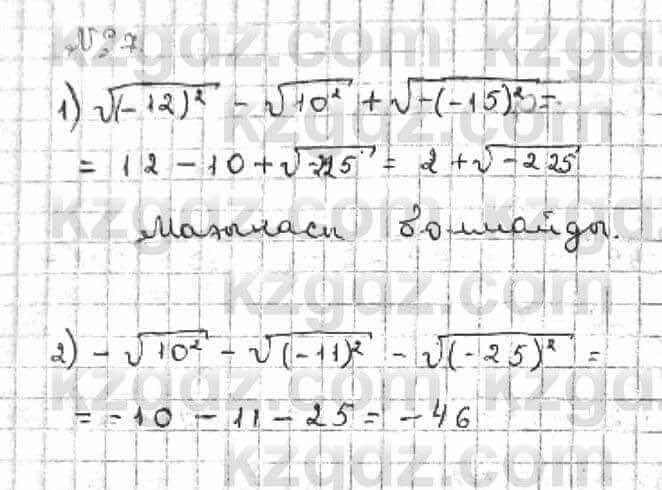 № 27.
1) √(-12)² - √10² + √-(-15)² =
= 12 - 10 + √-225 = 2 + √-225
Мағынасы болмайды.
2) - √10² - √(-11)² - √(-25)² =
= -10 - 11 - 25 = -46
kzgdz.com